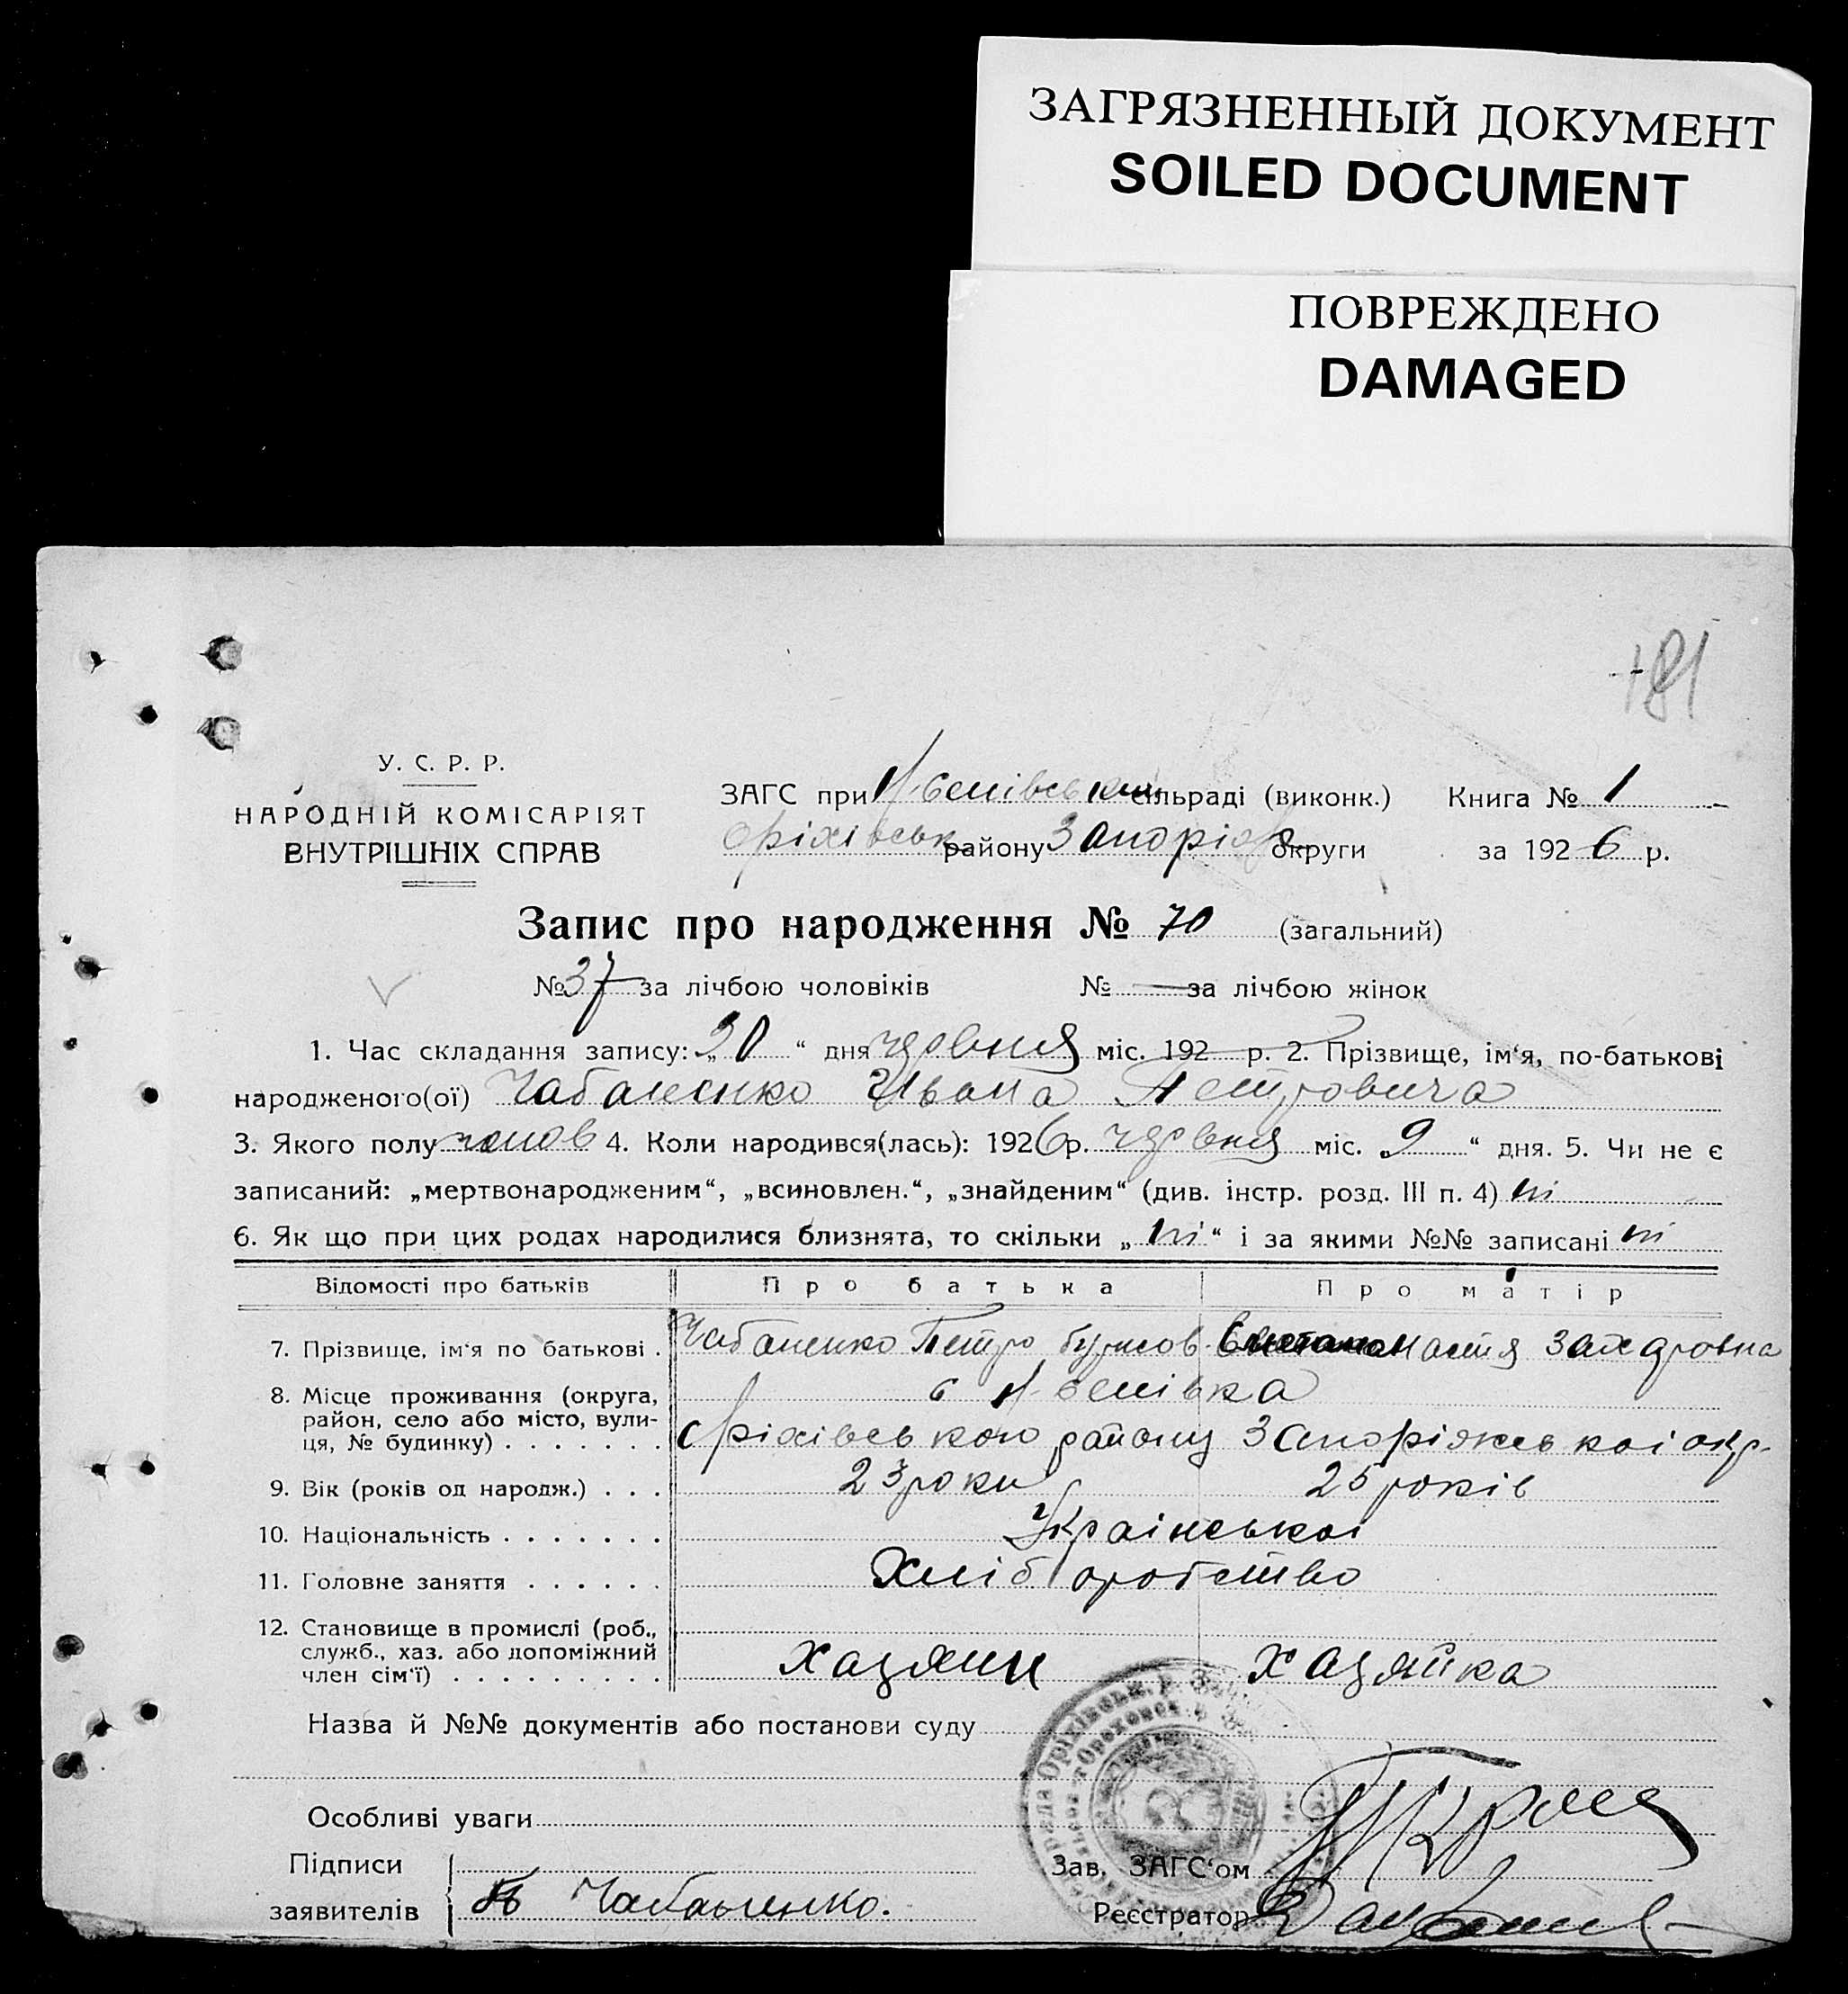 ЗАГРЯЗНЕННЫЙ ДОКУМЕНТ
SOILED DOCUMENT
ПОВРЕЖДЕНО
DAMAGED
181
У. С. Р. Р.
НАРОДНІЙ КОМІСАРІЯТ
ВНУТРІШНІХ СПРАВ
ЗАГС при сільраді (виконк.) Книга № 1
Оріхівськ району Запоріз округи за 1926 р.
Запис про народження № 70 (загальний)
№ 37 за лічбою чоловіків № — за лічбою жінок
1. Час складання запису: „20“ дня червня міс. 192 р. 2. Прізвище, ім'я, по-батькові
народженого(ої) Чабаненко Івана Петровича
3. Якого полу чолов 4. Коли народився(лась): 1926 р. червня міс. „9“ дня. 5. Чи не є
записаний: „мертвонародженим“, „всиновлен.“, „знайденим“ (див. інстр. розд. III п. 4) ні
6. Як що при цих родах народилися близнята, то скільки „ні“ і за якими №№ записані ні
Відомості про батьків Про батька Про матір
7. Прізвище, ім'я по батькові . Чабаненко Петро Настя Захаровна
8. Місце проживання (округа,
район, село або місто, вули-
ця, № будинку) . . . . . . . Оріхівського району Запоріжської окр.
9. Вік (років од народж.) . . . 23 роки 25 років
10. Національність . . . . . . . Української
11. Головне заняття . . . . . . Хліборобство
12. Становище в промислі (роб.,
служб., хаз. або допоміжний
член сім'ї) . . . . . . . . . Хазяин Хазяйка
Назва й №№ документів або постанови суду
Особливі уваги
Підписи
заявителів Чабаненко.
Зав. ЗАГС'ом
Реєстратор